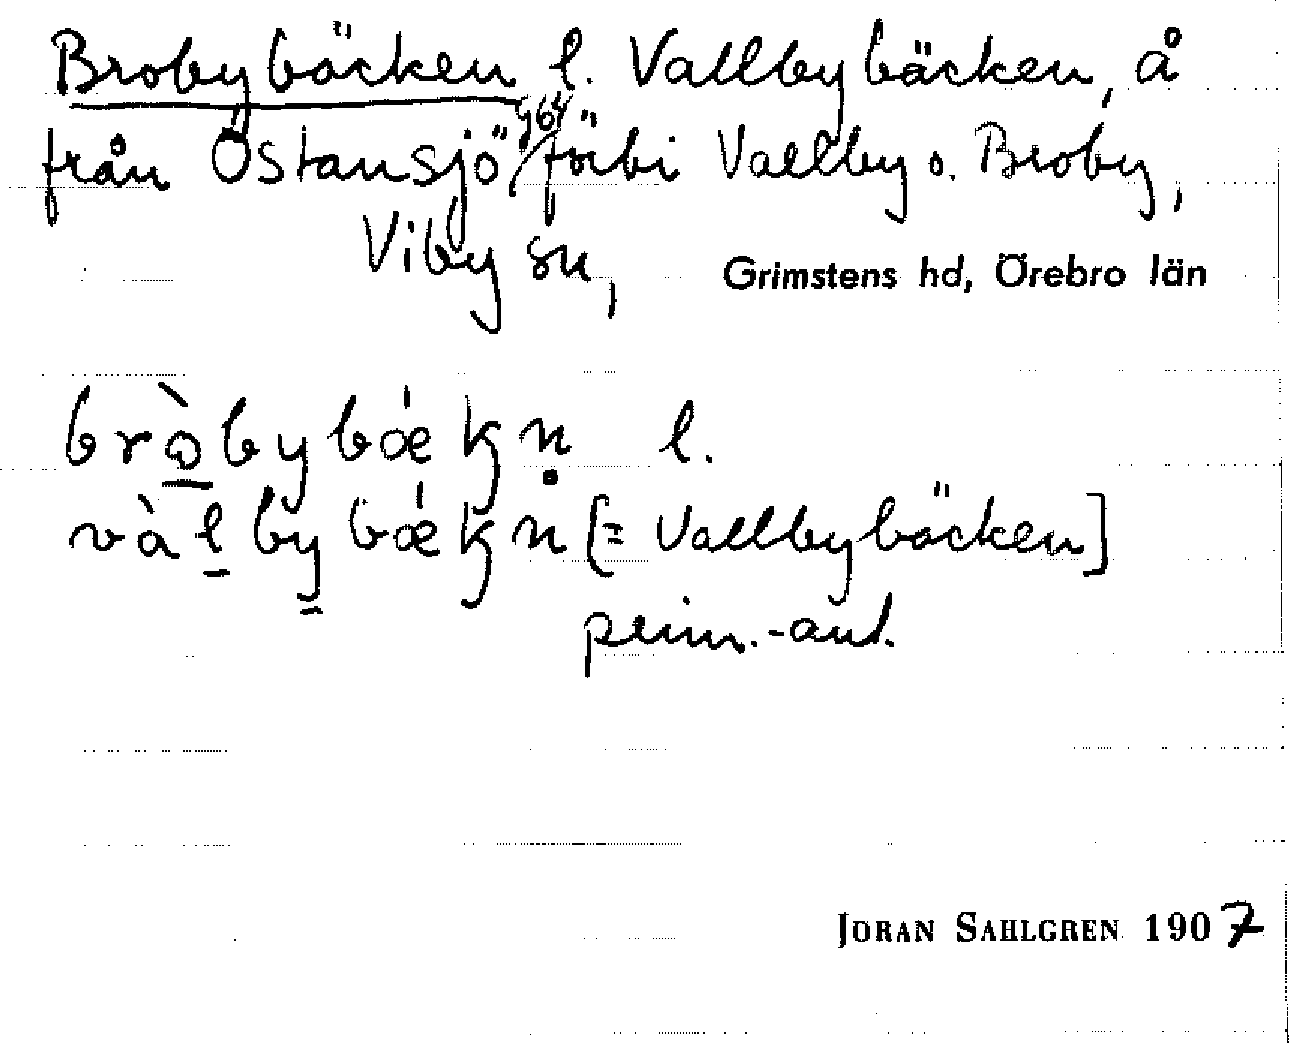 Brobybäcken l. Vallbybäcken, å
från Östansjö förbi Vallby o. Broby,
Viby sn,
Grimstens hd, Örebro län
bròbybǽkn̥ l.
vàlbybǽkn [= Vallbybäcken]
JORAN SAHLGREN 1907